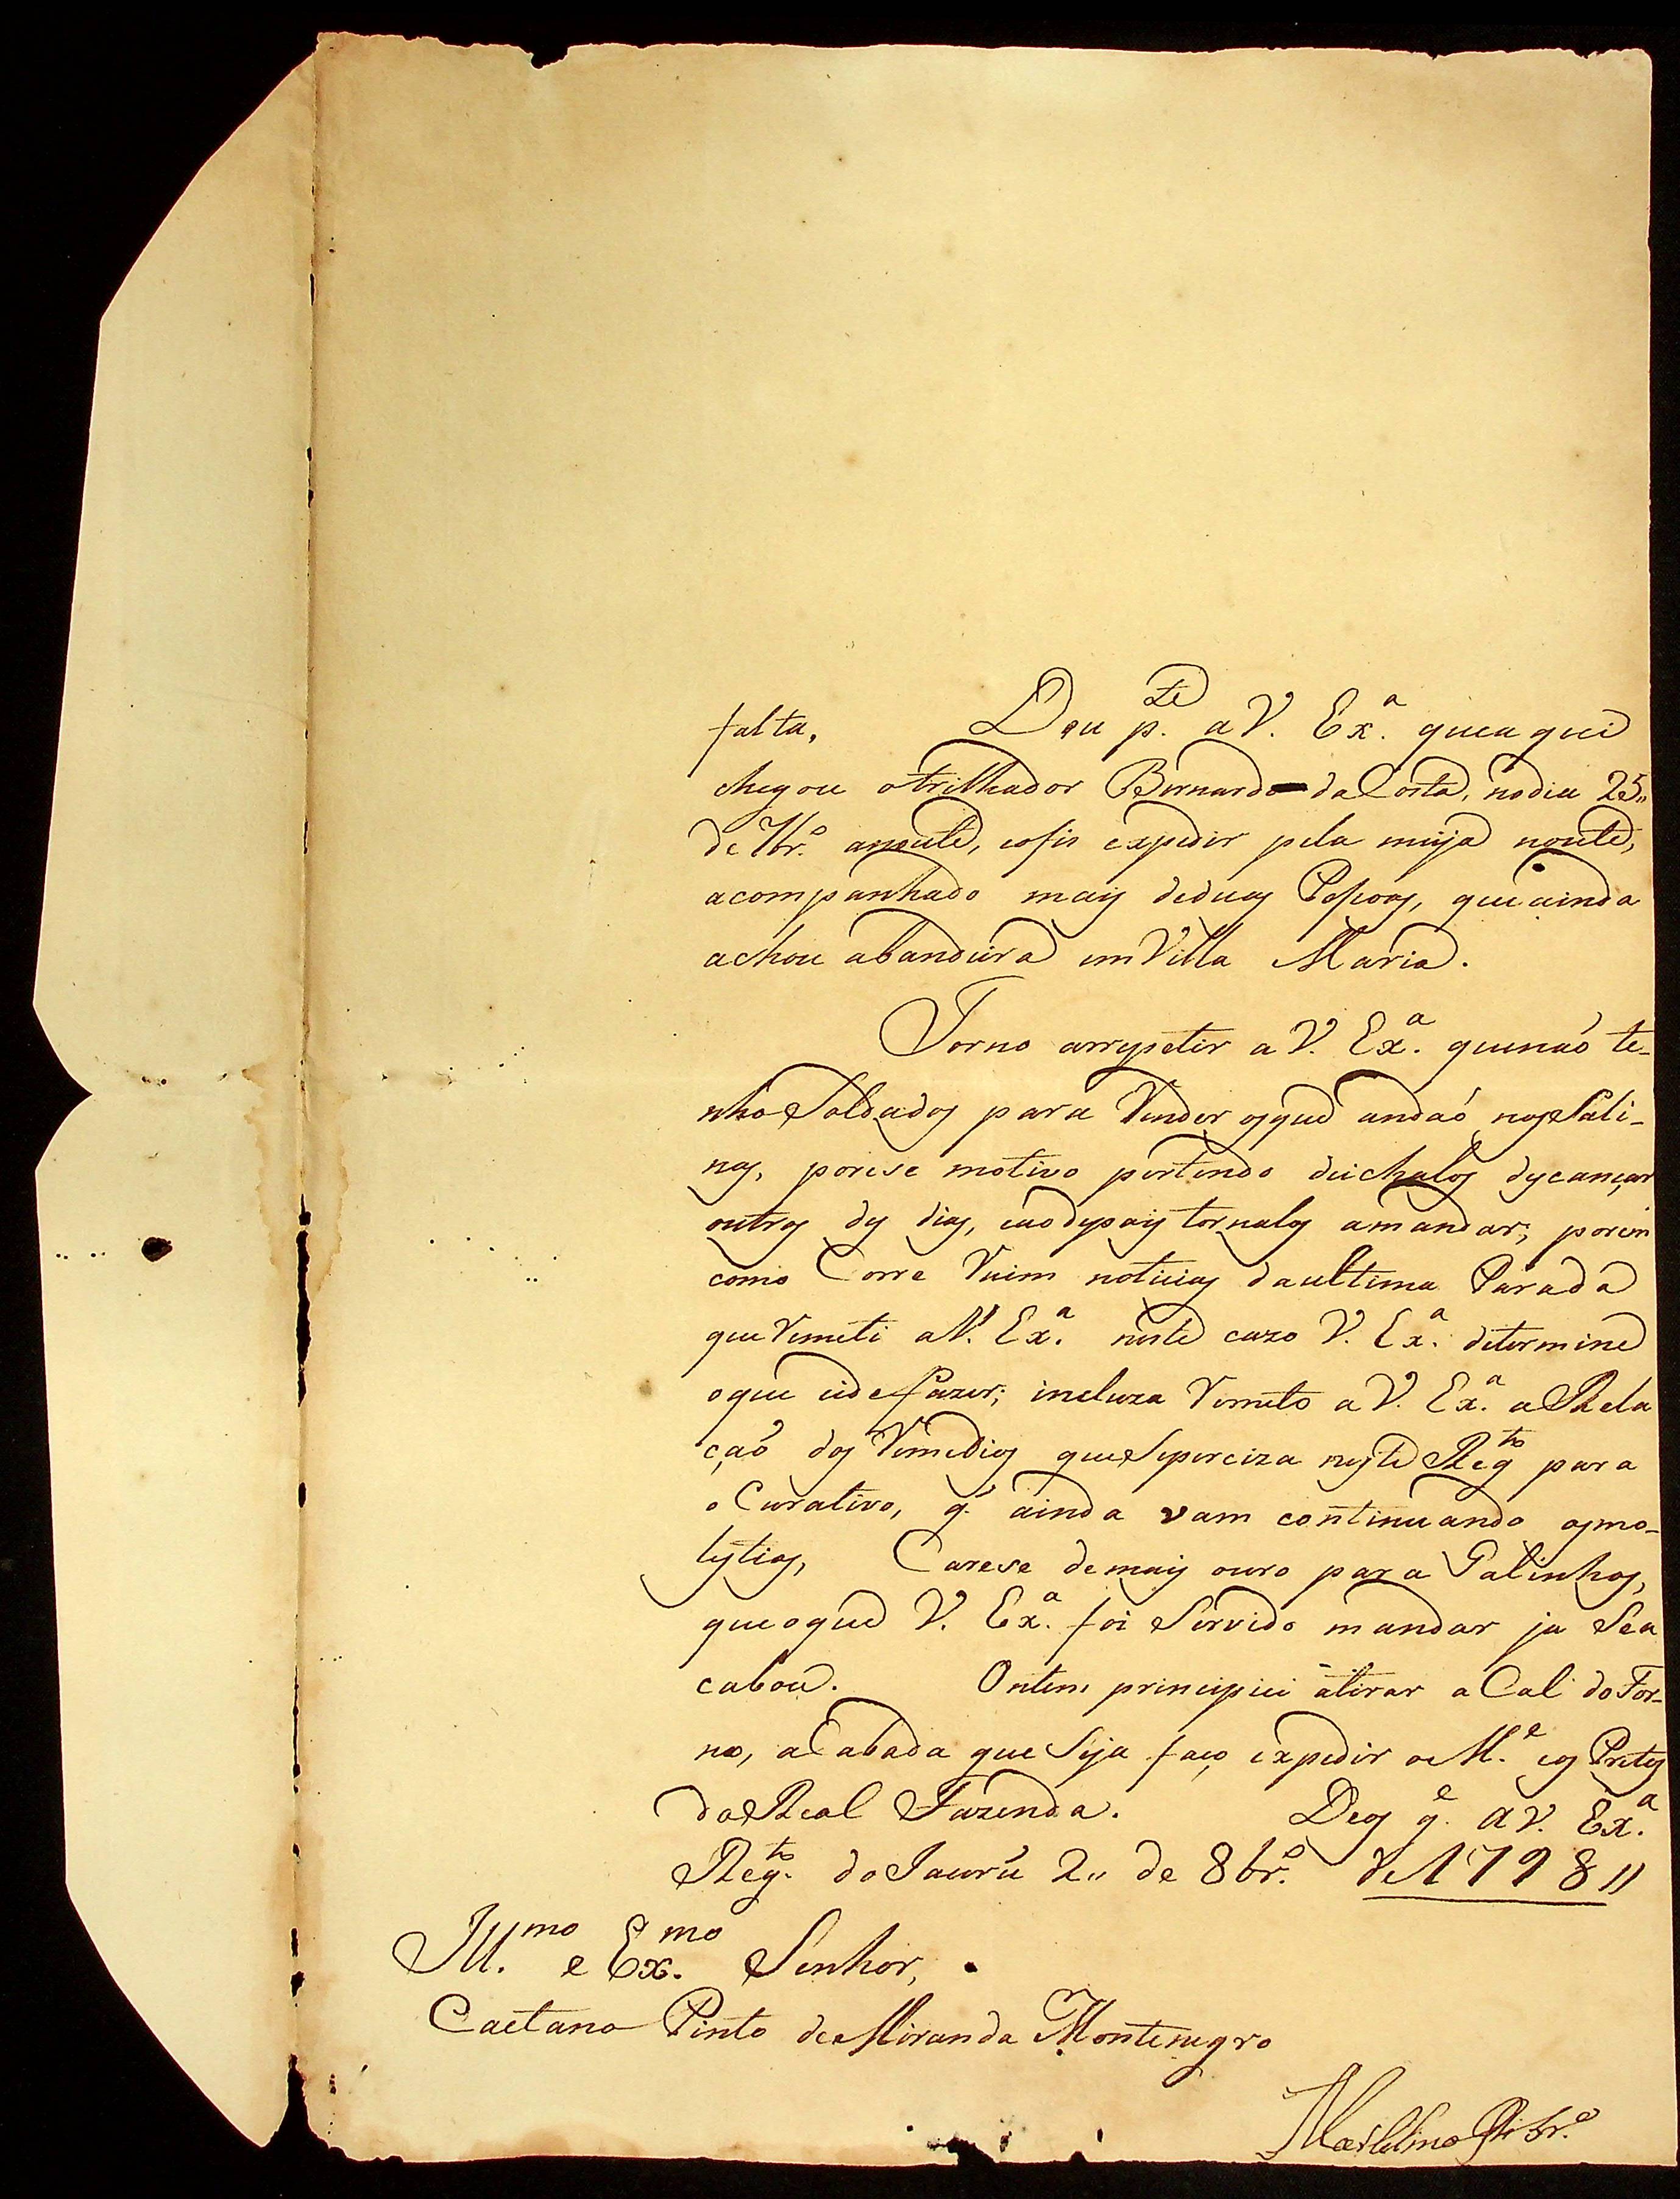 falta, Dou p.te a V. Ex.a que aqui
chegou otrilhador Bernardo da Costa, nodia 25,,
de 7br.o , eofis expedir pela meya noute,
acompanhado mais deduas Pessoas, que ainda
achou abandeira em Villa Maria.
Torno arrepetir a V. Ex.a quenaó te-
nho Soldados para Render osque andaó nas Sali-
nas, porese motivo pertendo deichalos descançar
outros des dias, eaodepois tornalos amandar; porem
como Corre Ruim noticias daultima Parada
que Remeti a V. Ex.a neste cazo V. Ex.a determine
oque eide fazer; incluza Remeto a V. Ex.a a Rela
çaó dos Remedios que Seperciza neste Reg.to para
o Curativo, q. ainda vam continuando asmo-
lestias, Carese demais ouro para Galinhas,
que oque V. Ex.a foi Servido mandar ja Sea
cabou. Ontem principiei atirar a Cal do For-
no, aCabada que Seja faço expedir o M.e eos Pretos
da Real Fazenda. Deos g.e a V. Ex.a
Reg.to do Jaurú 2,, de 8br.o de 1798,,
Ill.mo e Ex.mo Senhor,
Caetano Pinto de Miranda Montenegro